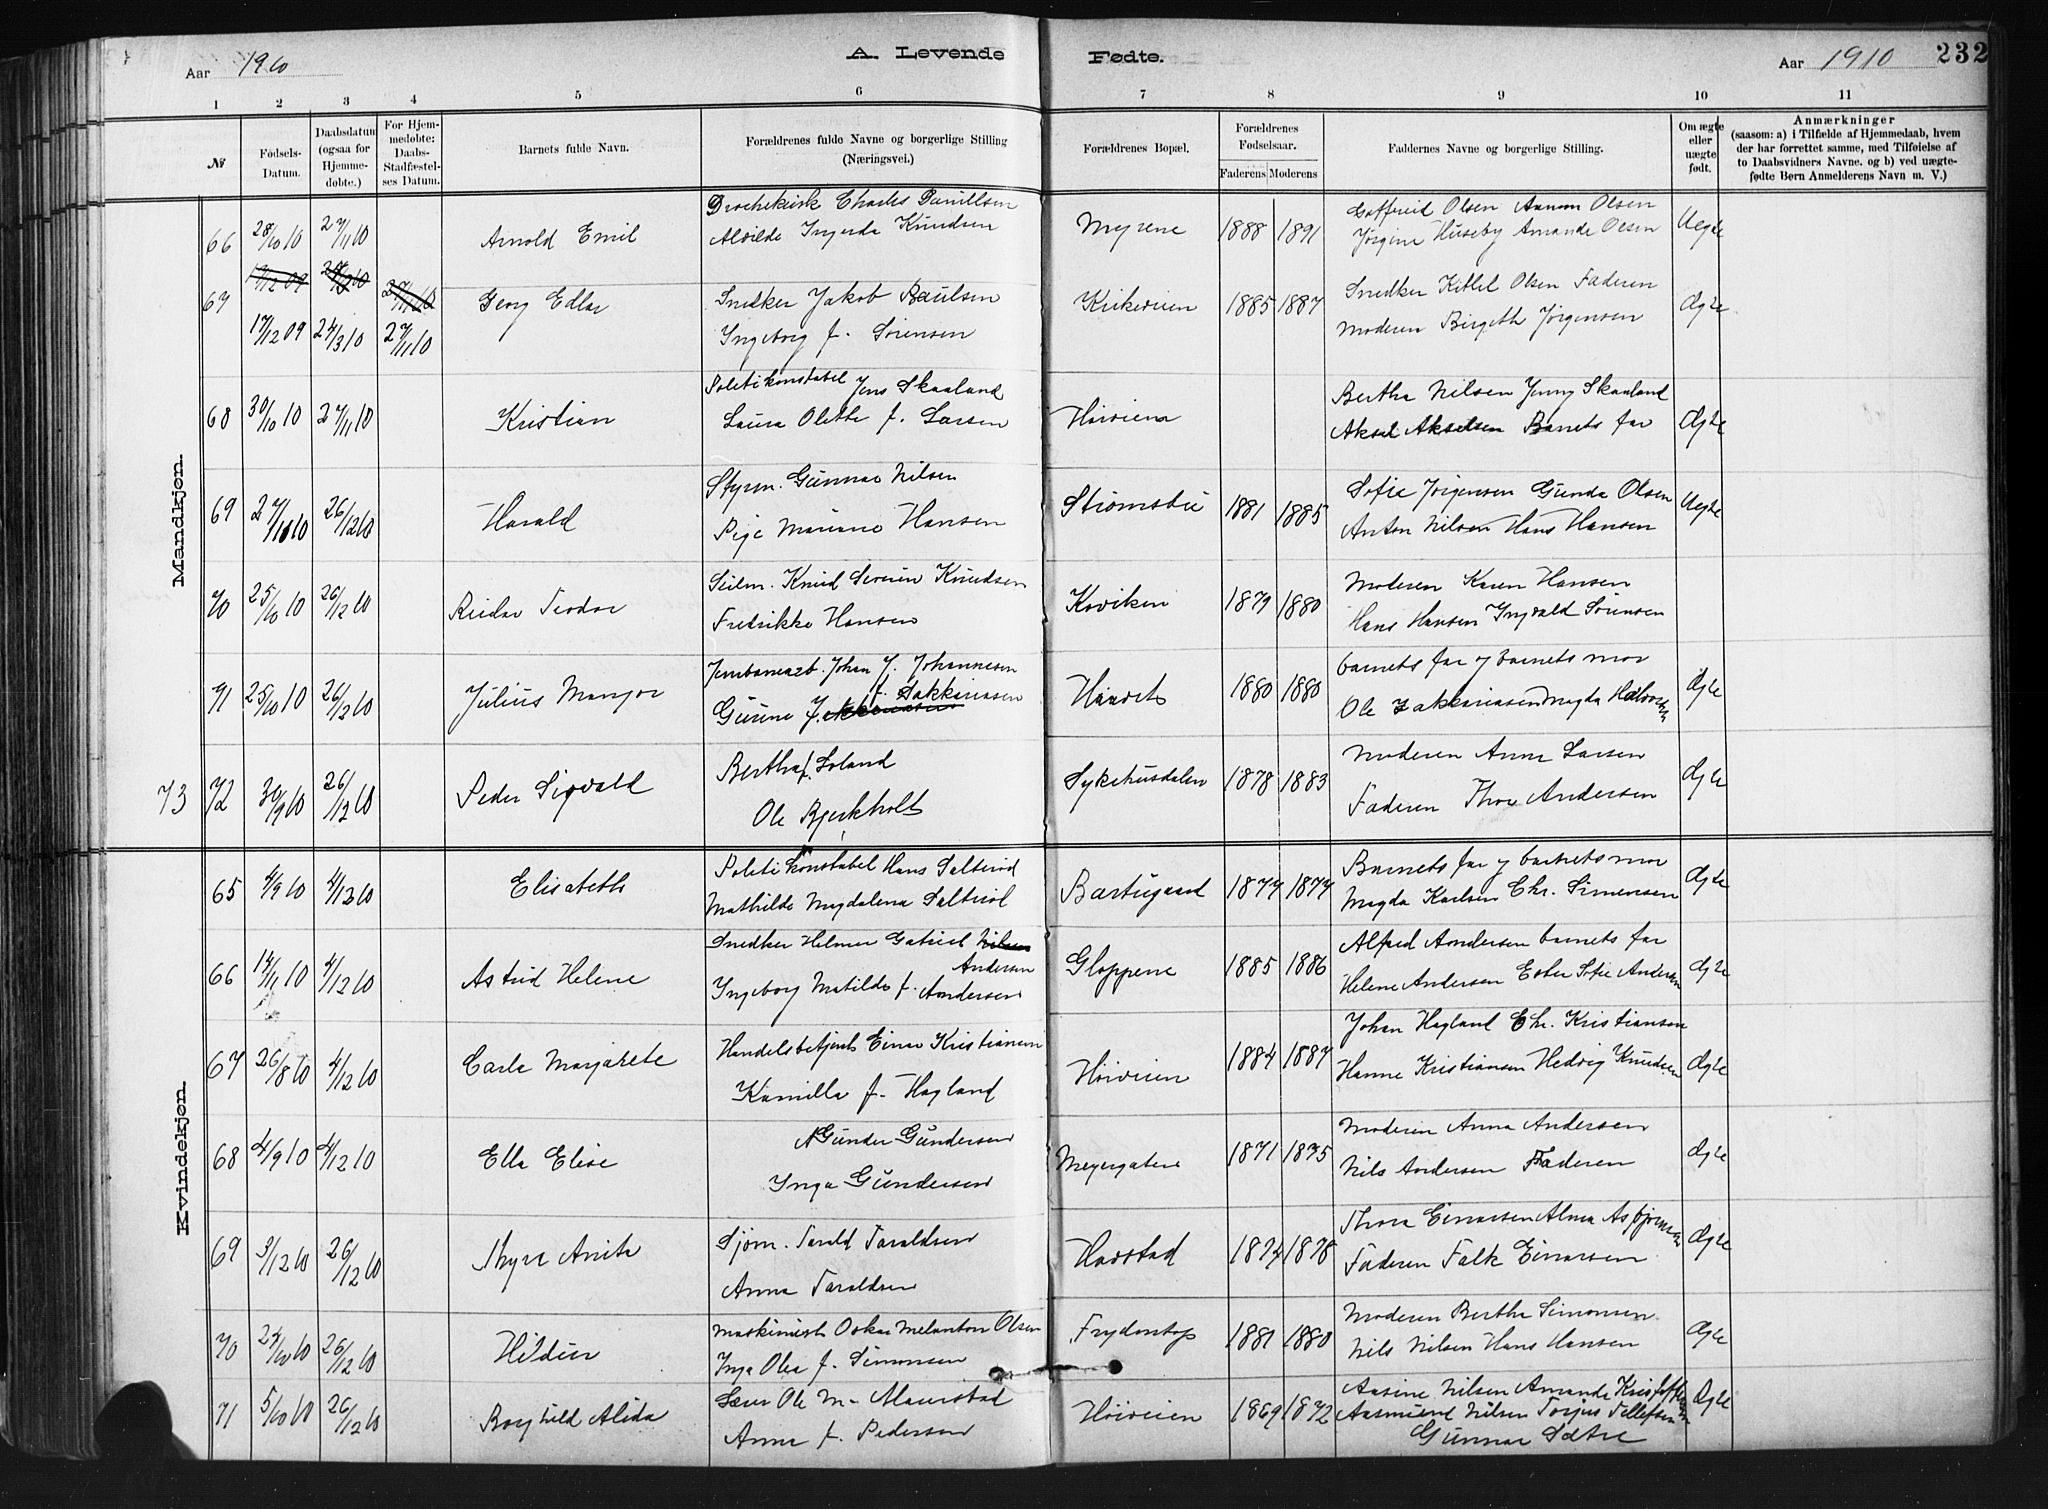 A. Levende Fødte.
Aar 1910
Aar 1910
232
1 2 3 4 5 6 7 8 9 10 11
№
Fødsels-Datum.
Daabsdatum (ogsaa for Hjemme-døbte.)
For Hjem-medøbte: Daabs-Stadfæstel-ses Datum.
Barnets fulde Navn.
Forældrenes fulde Navne og borgerlige Stilling (Næringsvei.)
Forældrenes Bopæl.
Forældrenes Fødselsaar.
Faderens Moderens
Faddernes Navne og borgerlige Stilling.
Om ægte eller uægte født.
Anmærkninger
(saasom: a) i Tilfælde af Hjemmedaab, hvem
der har forrettet samme, med Tilføielse af
to Daabsvidners Navne. og b) ved uægte-
fødte Børn Anmelderens Navn m. V.)
Mandkjøn.
66 28/10 10 27/11 10 Arnold Emil Charles Danillsen Meyrene 1888 1891 Olsen Olsen Uegte
Alvilde Ingerda Knudsen Jørgine Huseby Amanda Olsen
67 17/12 09 24/3 10 27/11 10 Georg Edler Snedker Jakob Paulsen Kirkeveien 1885 1887 Snedker Kittel Olsen Faderen Ægte
Ingeborg f. Sørensen Moderen Birgeth Jørgensen
68 30/10 10 27/11 10 Kristian Politikonstabel Jens Skaaland Høiveien Bertha Nilsen Jenny Skaaland Ægte
Laura Olette f. Larsen Aksel Akselsen Barnets far
69 27/10 10 26/12 10 Harald Styrm. Gunnar Nilsen Strømsbu 1881 1885 Sofie Jørgensen Gunda Olsen Uegte
Pige Mariane Hansen Anton Nilsen Hans Hansen
70 25/10 10 26/12 10 Reidar Teodor Seilm. Knud Severin Knudsen Kaviken 1879 1880 Moderen Karen Hansen
Fredrikke Hansen Hans Hansen Ingvald Sørensen
71 25/10 10 26/12 10 Julius Mangor Jernbanearb. Johan J. Johannesen 1880 1880 barnets far og barnets mor Ægte
Gurine f. Sakkariassen Ole Zakkariasen Magda
73 72 30/9 10 26/12 10 Peder Sigvald Bertha f. Loland Sykehusdalen 1878 1883 Moderen Anne Larsen Ægte
Ole Bjerkholt Faderen Thor Andersen
Kvindekjøn
65 4/9 10 4/12 10 Elisabeth Politikonstabel Hans Salterød 1877 1877 Barnets far og barnets mor Ægte
Mathilde Magdalena Salterød Magda Karlsen Chr. Simensen
66 14/11 10 4/12 10 Astrid Helene Snedker Helmer Gabriel Nilsen Andersen Gloppene 1885 1886 Alfred Andersen barnets far Ægte
Ingeborg Matilde f. Andersen Helene Andersen Ester Sofie Andersen
67 26/8 10 4/12 10 Carla Margarete Handelsbetjent Einar Kristiansen Høiveien 1884 1887 Johan Hagland Chr. Kristiansen Ægte
Kamilla f. Hagland Hanne Kristiansen Hedvig Knudsen
68 4/9 10 4/12 10 Ella Elise Gunder Gundersen Meyergaten 1871 1875 Moderen Anna Andersen Ægte
Inga Gundersen Nils Andersen Faderen
69 3/12 10 26/12 10 Thyra Anita Sjøm. Tarald Taraldsen Havstad 1874 1878 Thora Einarsen Alma Asbjørnsen Ægte
Anna Taraldsen Faderen Falk Einarsen
70 24/10 10 26/12 10 Hildur Maskinist Oskar Melanton Olsen Frydentop 1881 1880 Moderen Bertha Simonsen Ægte
Inga Olea f. Simonsen Nils Nilsen Hans Hansen
71 5/10 10 26/12 10 Borghild Alida Ole M. Høiveien 1869 1872 Aasine Nilsen Amanda Kristoffersen Ægte
Anna f. Pedersen Aasmund Nilsen Torjus Tellefsen
Gunnar Sætre